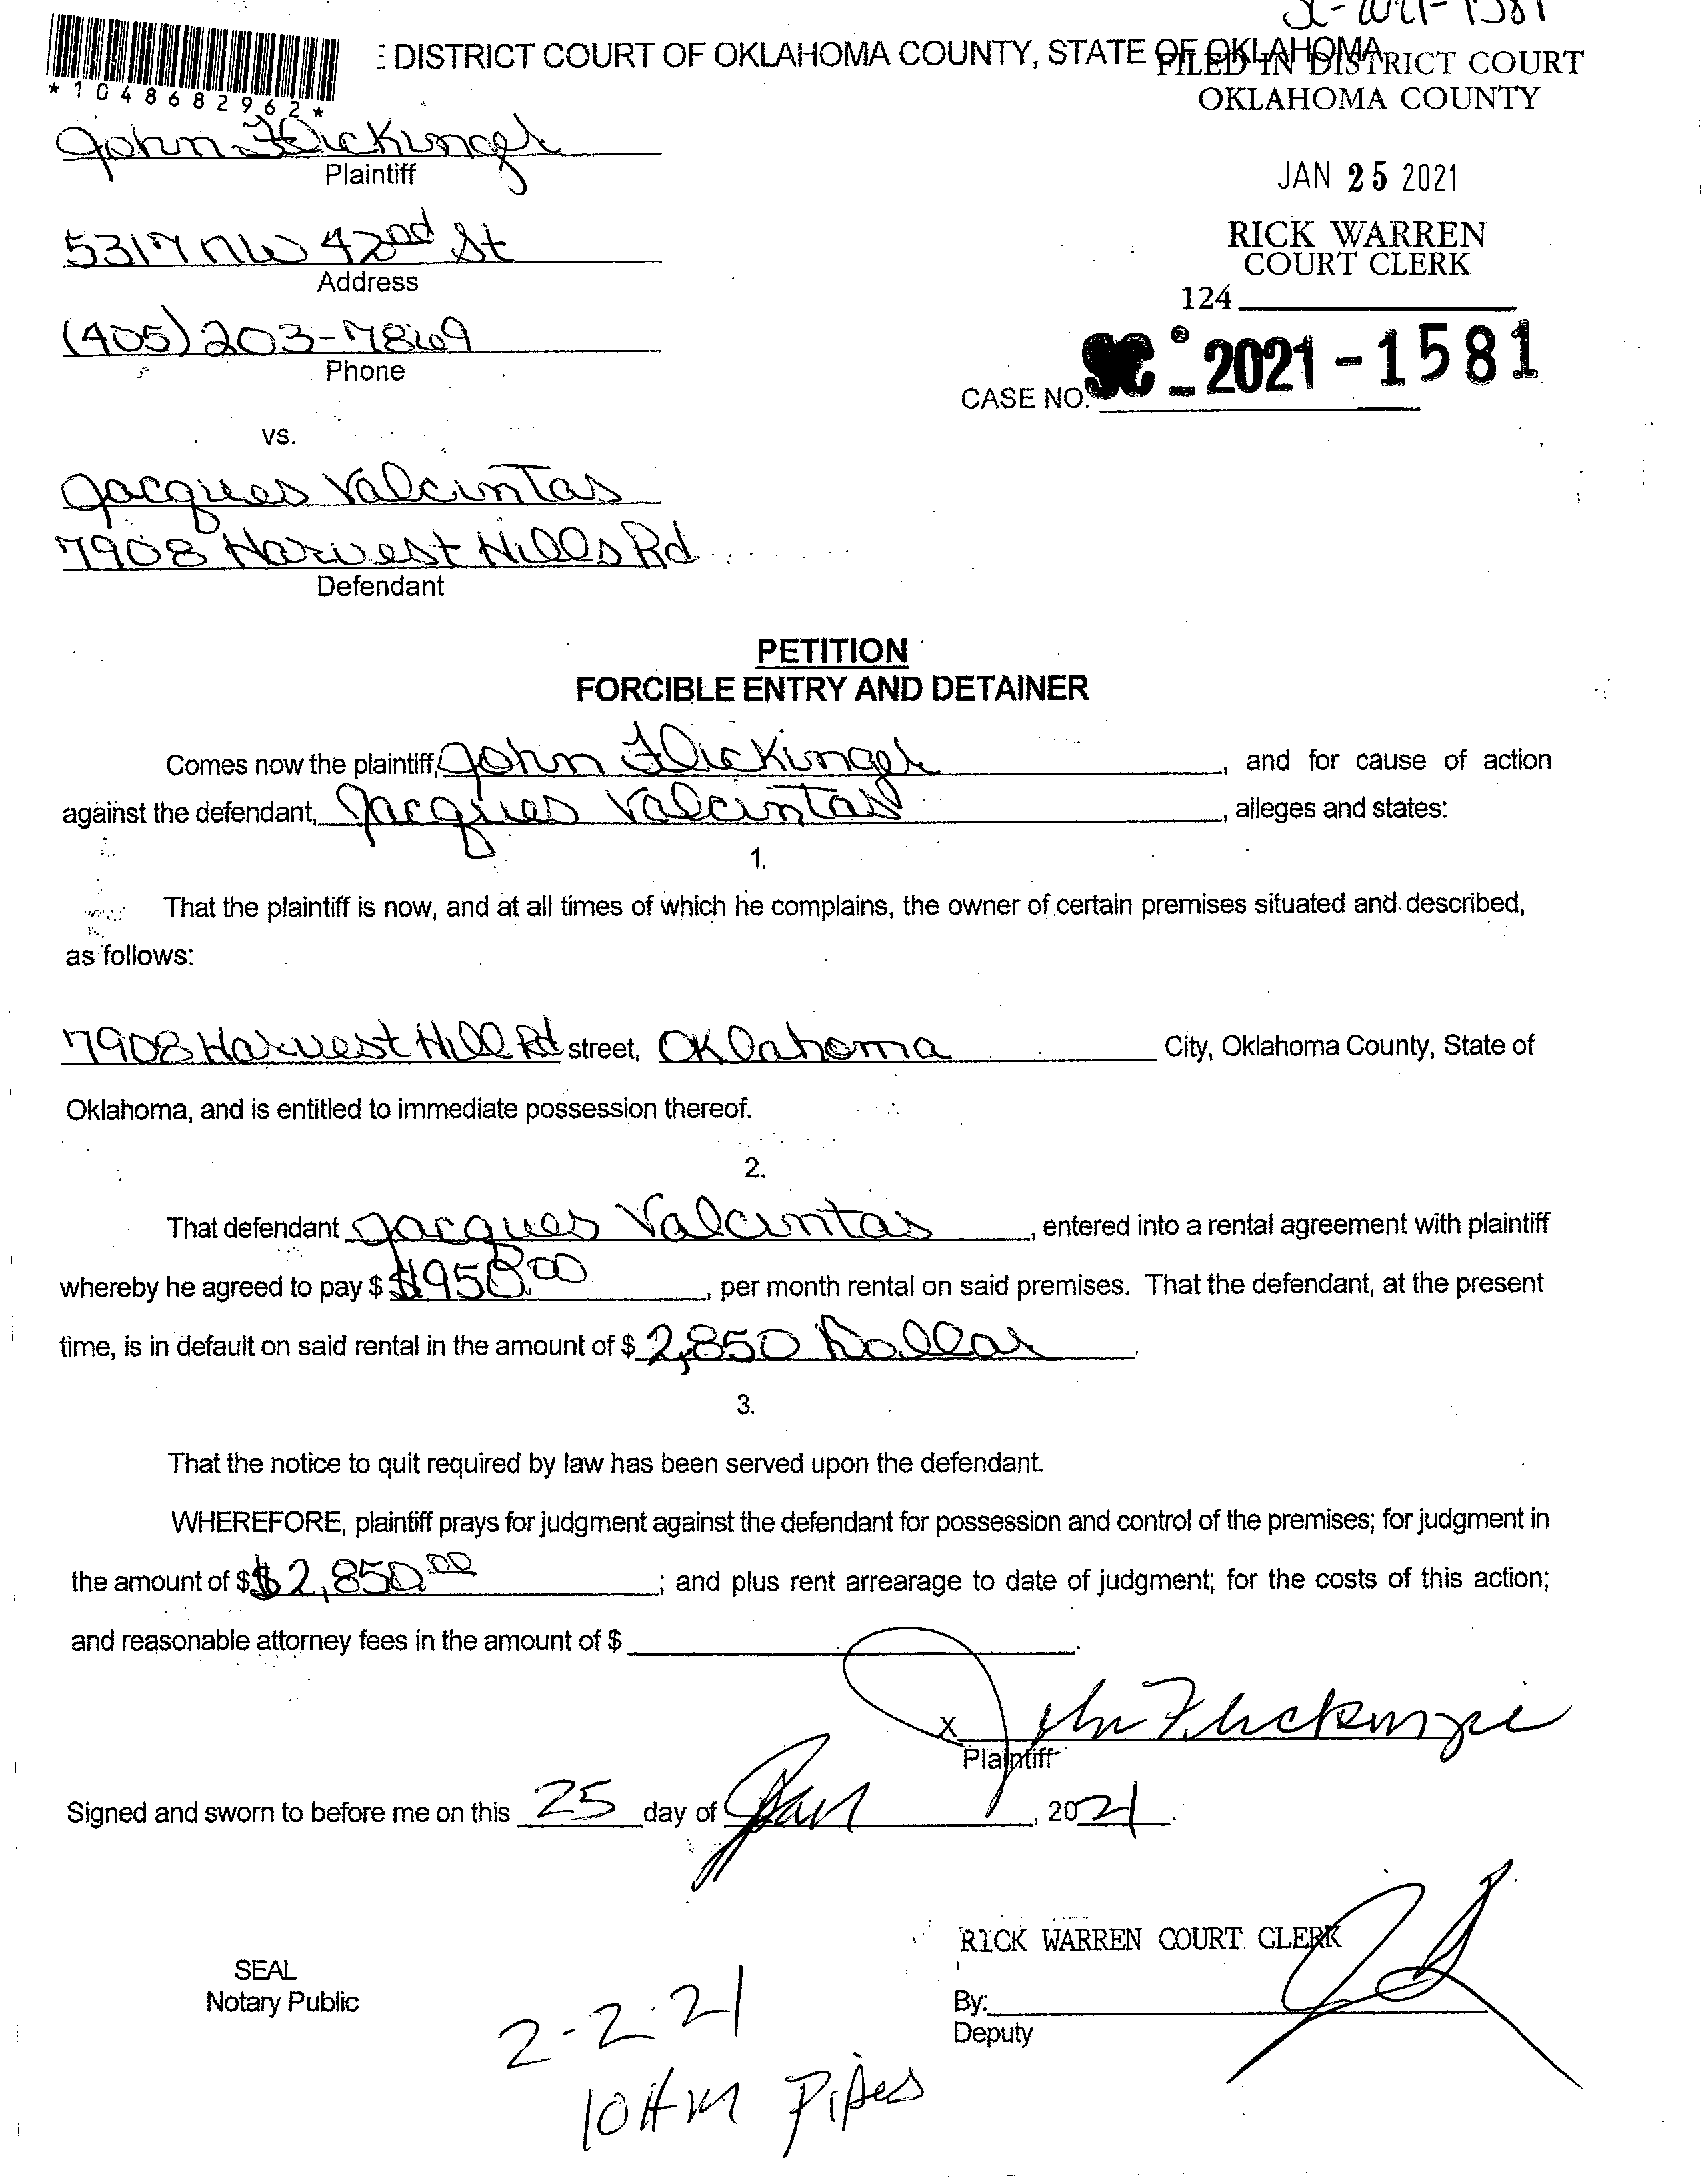 SC-2021-1581
E DISTRICT COURT OF OKLAHOMA COUNTY, STATE OF OKLAHOMA
FILED IN DISTRICT COURT
OKLAHOMA COUNTY
*1048682962*
John Flickinger
Plaintiff
JAN 25 2021
5317 NW 42nd St
Address
RICK WARREN
COURT CLERK
124
(405) 203-7869
Phone
CASE NO. SC-2021-1581
vs.
Jacques Valcintas
7908 Harvest Hills Rd
Defendant
PETITION
FORCIBLE ENTRY AND DETAINER
Comes now the plaintiff, John Flickinger, and for cause of action
against the defendant, Jacques Valcintas, alleges and states:
1.
That the plaintiff is now, and at all times of which he complains, the owner of certain premises situated and described,
as follows:
7908 Harvest Hill Rd street, Oklahoma City, Oklahoma County, State of
Oklahoma, and is entitled to immediate possession thereof.
2.
That defendant Jacques Valcintas, entered into a rental agreement with plaintiff
whereby he agreed to pay $ $950.00, per month rental on said premises. That the defendant, at the present
time, is in default on said rental in the amount of $ 2,850 Dollar.
3.
That the notice to quit required by law has been served upon the defendant.
WHEREFORE, plaintiff prays for judgment against the defendant for possession and control of the premises; for judgment in
the amount of $ $2,850.00; and plus rent arrearage to date of judgment; for the costs of this action;
and reasonable attorney fees in the amount of $.
X John Flickinger
Plaintiff
Signed and sworn to before me on this 25 day of Jan, 2021.
RICK WARREN COURT CLERK
SEAL
Notary Public
By:
Deputy
2-2-21
10 AM Pipes